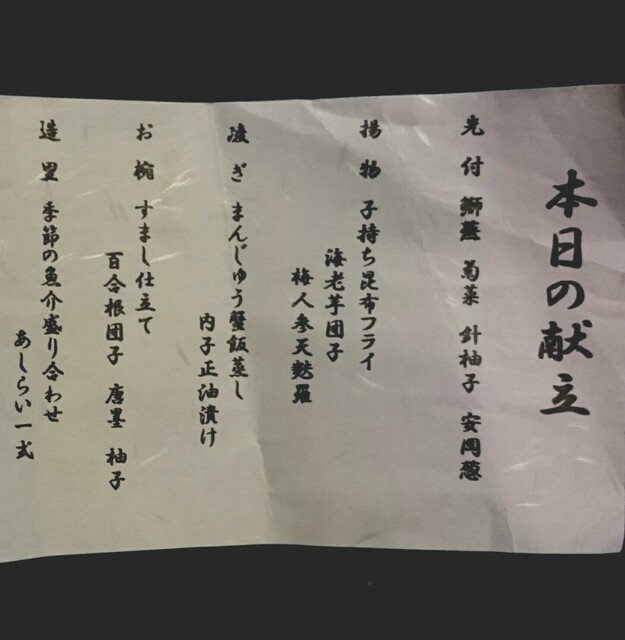 本日の献立
先付 鰤蕪 菊菜 針柚子 安岡葱
揚物 子持ち昆布フライ
海老芋団子
梅人参天麩羅
凌ぎ まんじゅう蟹飯蒸し
内子正油漬け
お椀 すまし仕立て
百合根団子 唐墨 柚子
造里 季節の魚介盛り合わせ
あしらい一式